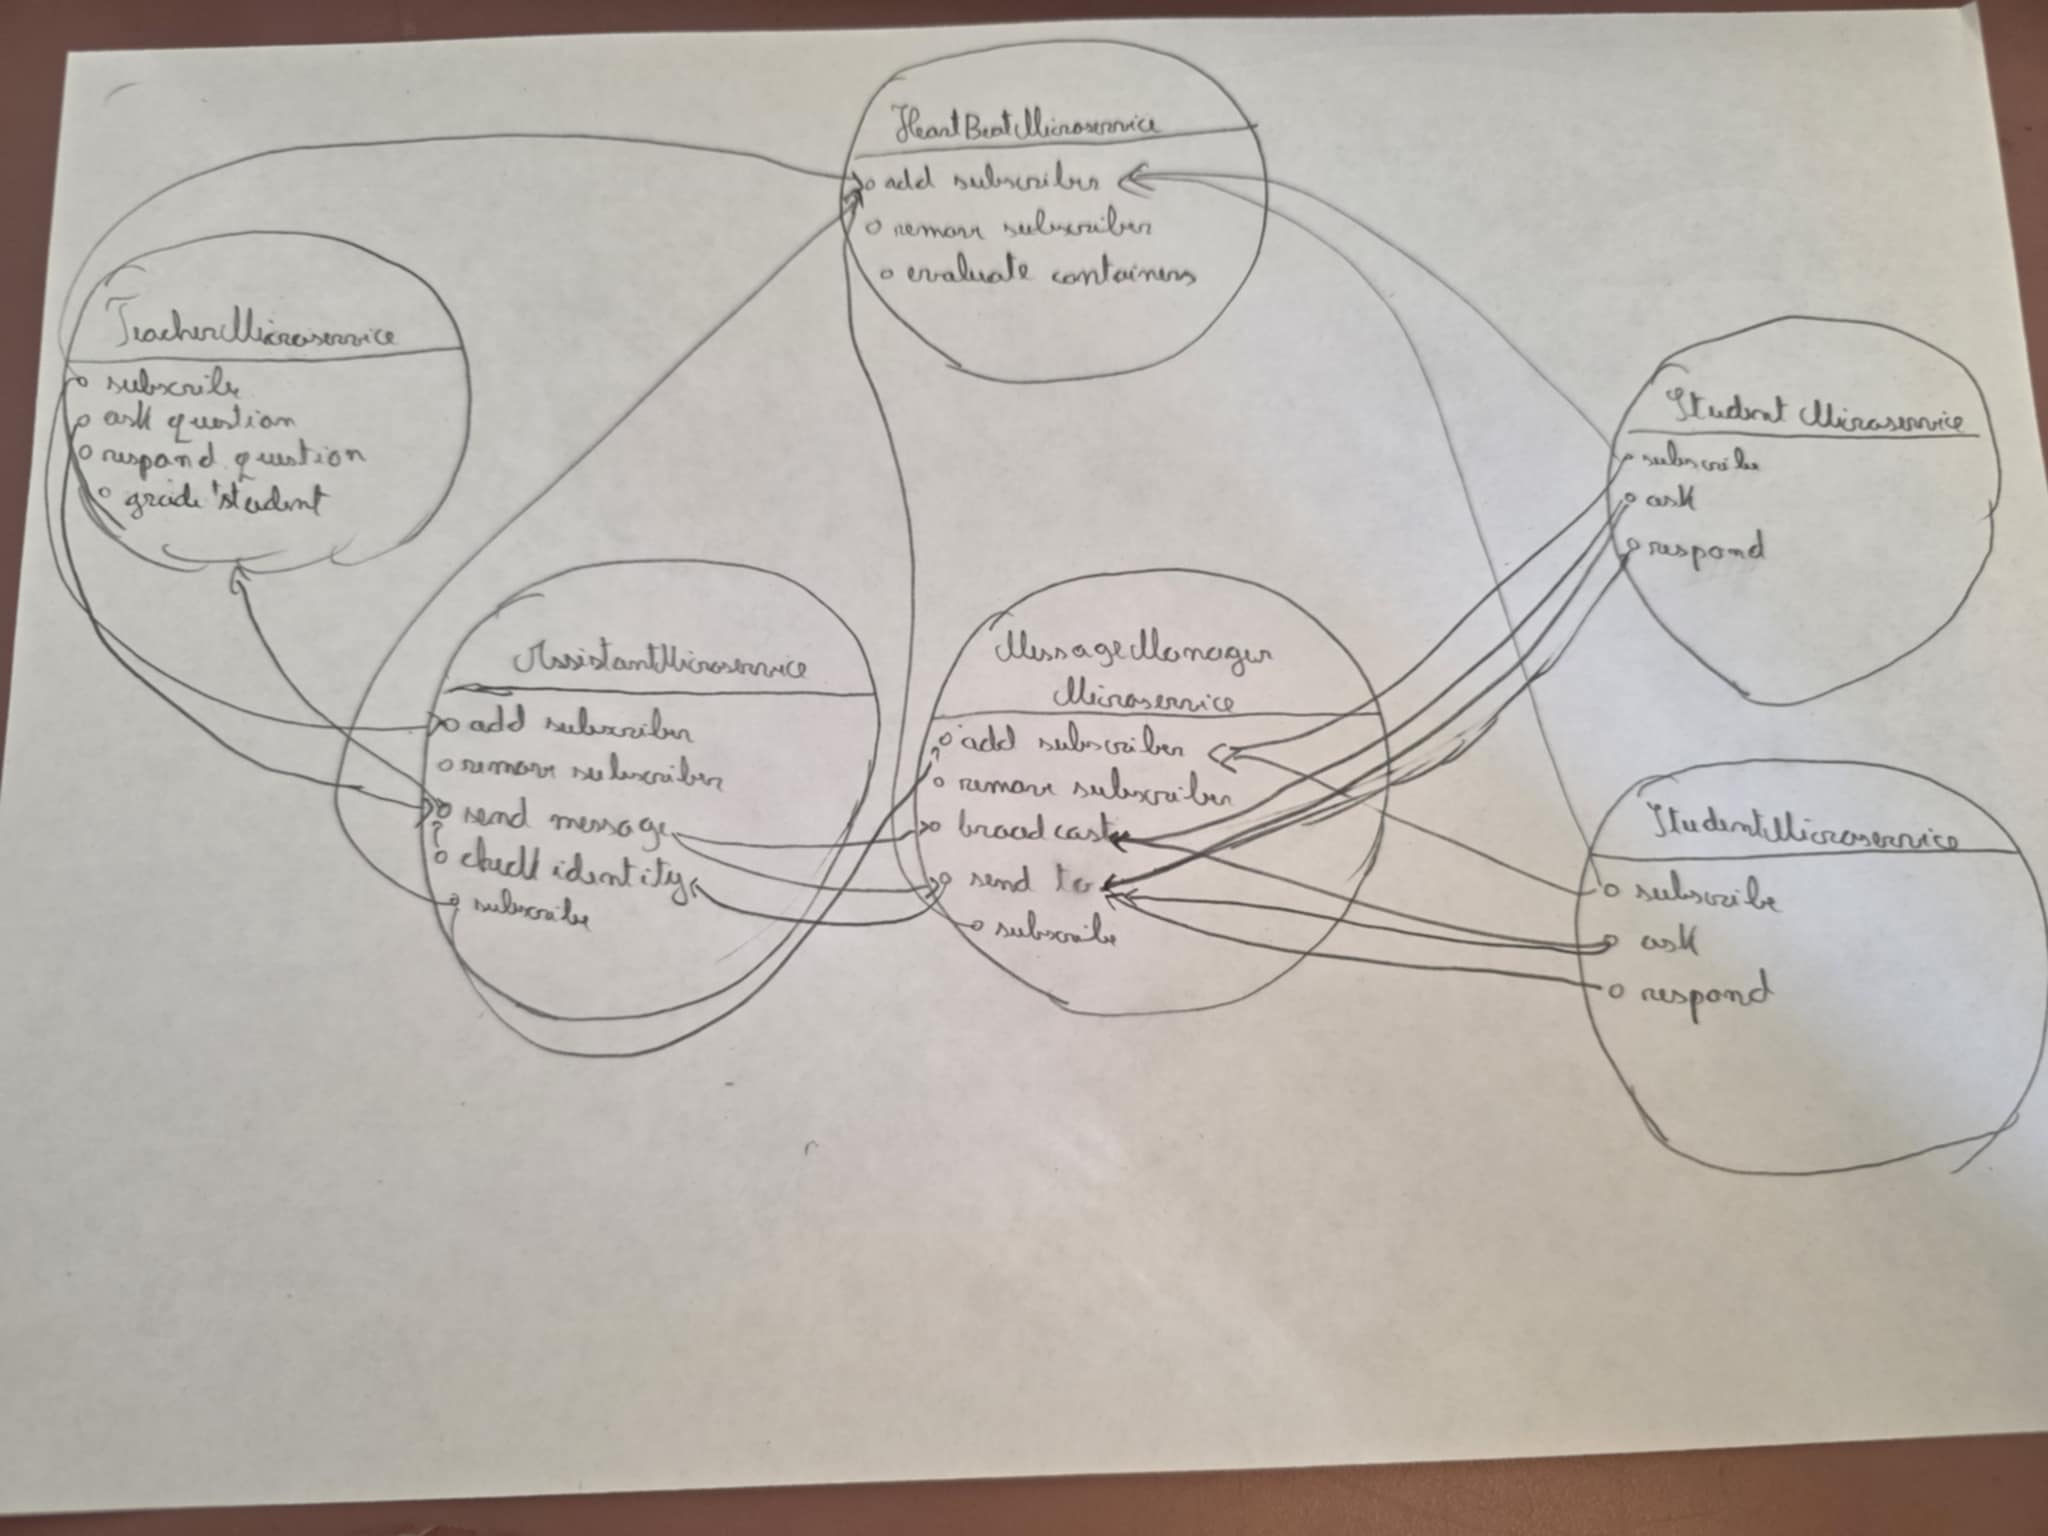 HeartBeatMicroservice
add subscriber
remove subscriber
evaluate containers
TeacherMicroservice
subscribe
ask question
respond question
grade student
Student Microservice
subscribe
ask
respond
AssistantMicroservice
add subscriber
remove subscriber
send message
check identity
subscribe
MessageManager
Microservice
add subscriber
remove subscriber
broadcast
send to
subscribe
StudentMicroservice
subscribe
ask
respond